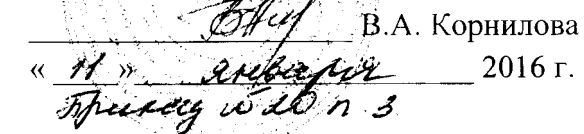 В.А. Корнилова
« 11 » января 2016 г.
Приказ № 20 п 3